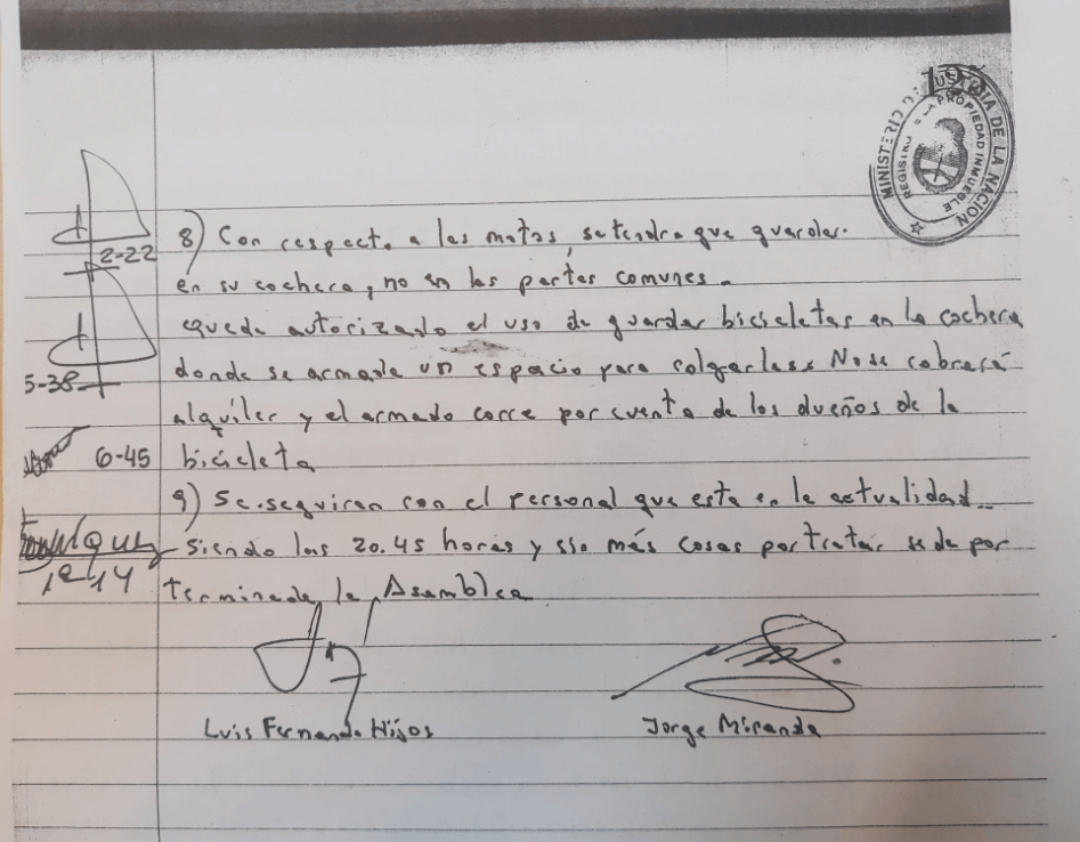 198
MINISTERIO DE JUSTICIA DE LA NACION
REGISTRO DE LA PROPIEDAD INMUEBLE
2-22
8) Con respecto a las motos, se tendra que guardar.
en su cochera, no en las partes comunes.
5-38
queda autorizado el uso de guardar bicicletas en la cochera
donde se armada un espacio para colgarlas. No se cobrará
alquiler y el armado corre por cuenta de los dueños de la
6-45 bicicleta
9) Se seguiran con el personal que esta en la actualidad..
Siendo las 20.45 horas y sin más cosas por tratar se da por
1º 14
terminada la Asamblea
Luis Fernando Hijos
Jorge Miranda